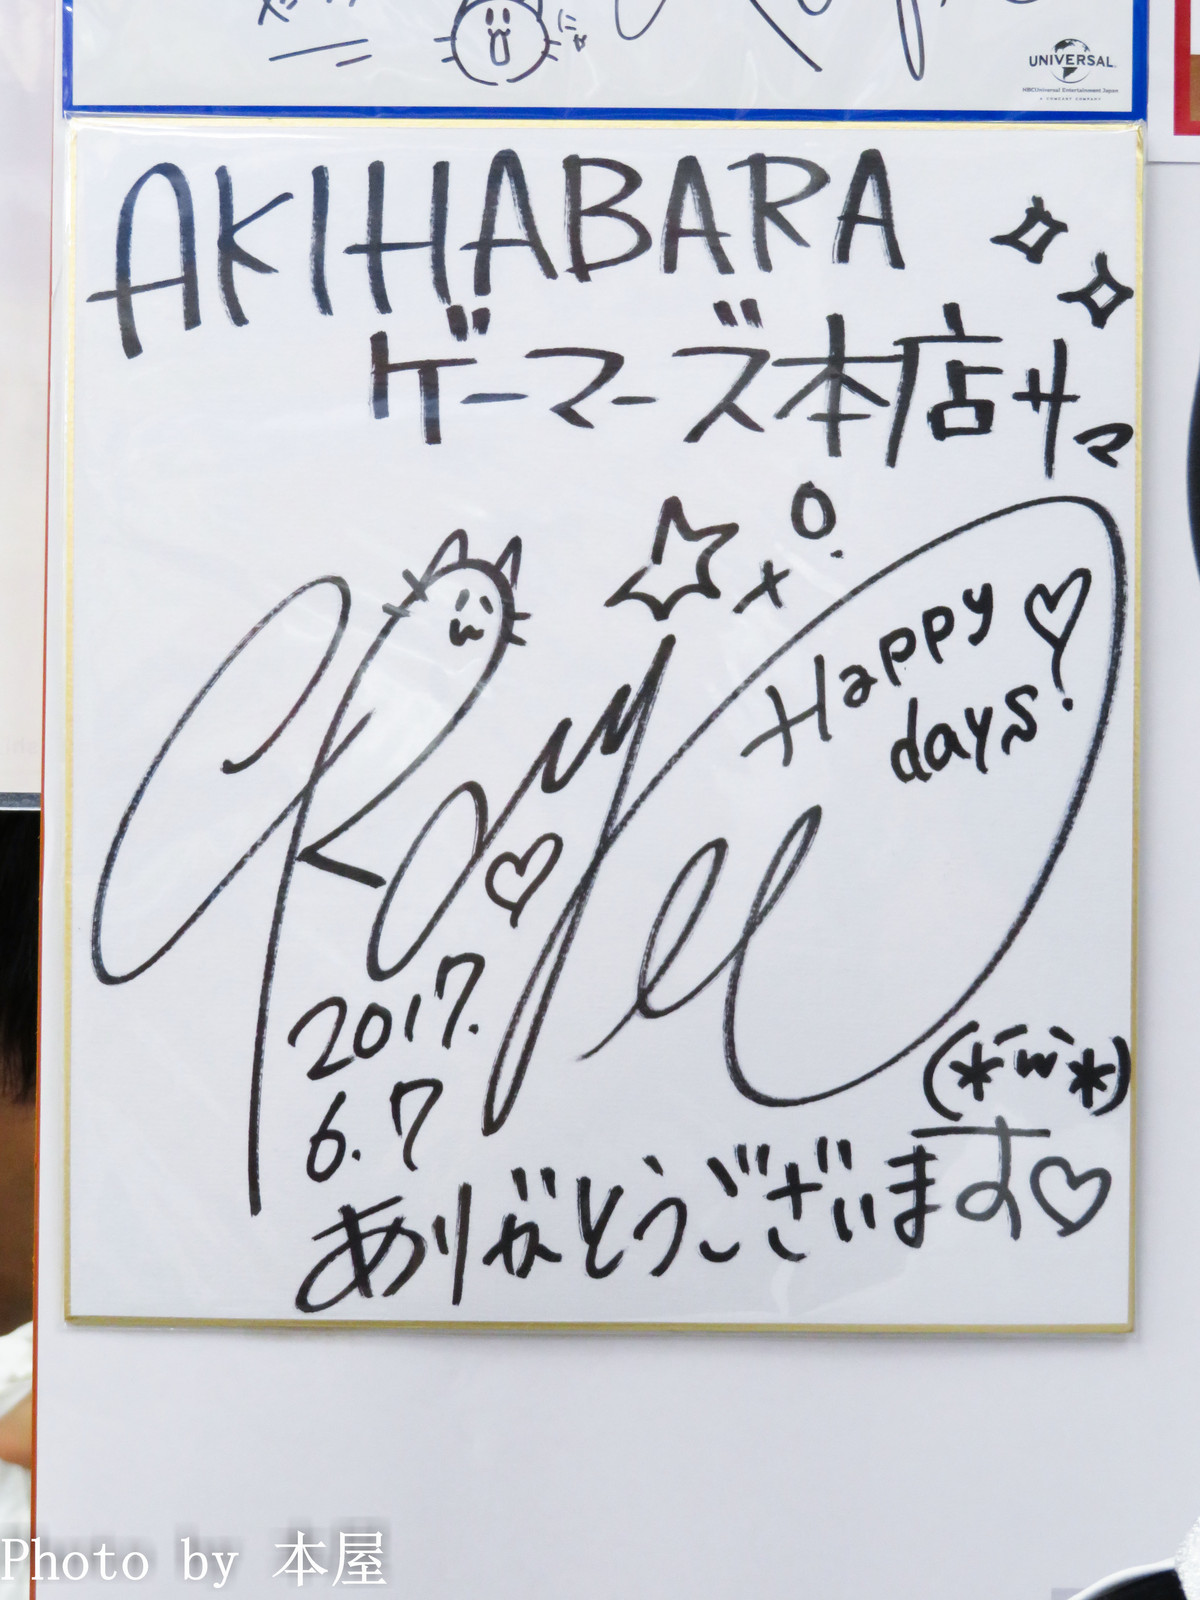 にゃ
UNIVERSAL
NBCUniversal Entertainment Japan
A COMCAST COMPANY
AKIHABARA
ゲーマーズ本店サマ
Happy
days
2017.
6.7
(*´ω`*)
ありがとうございます♡
Photo by 本屋